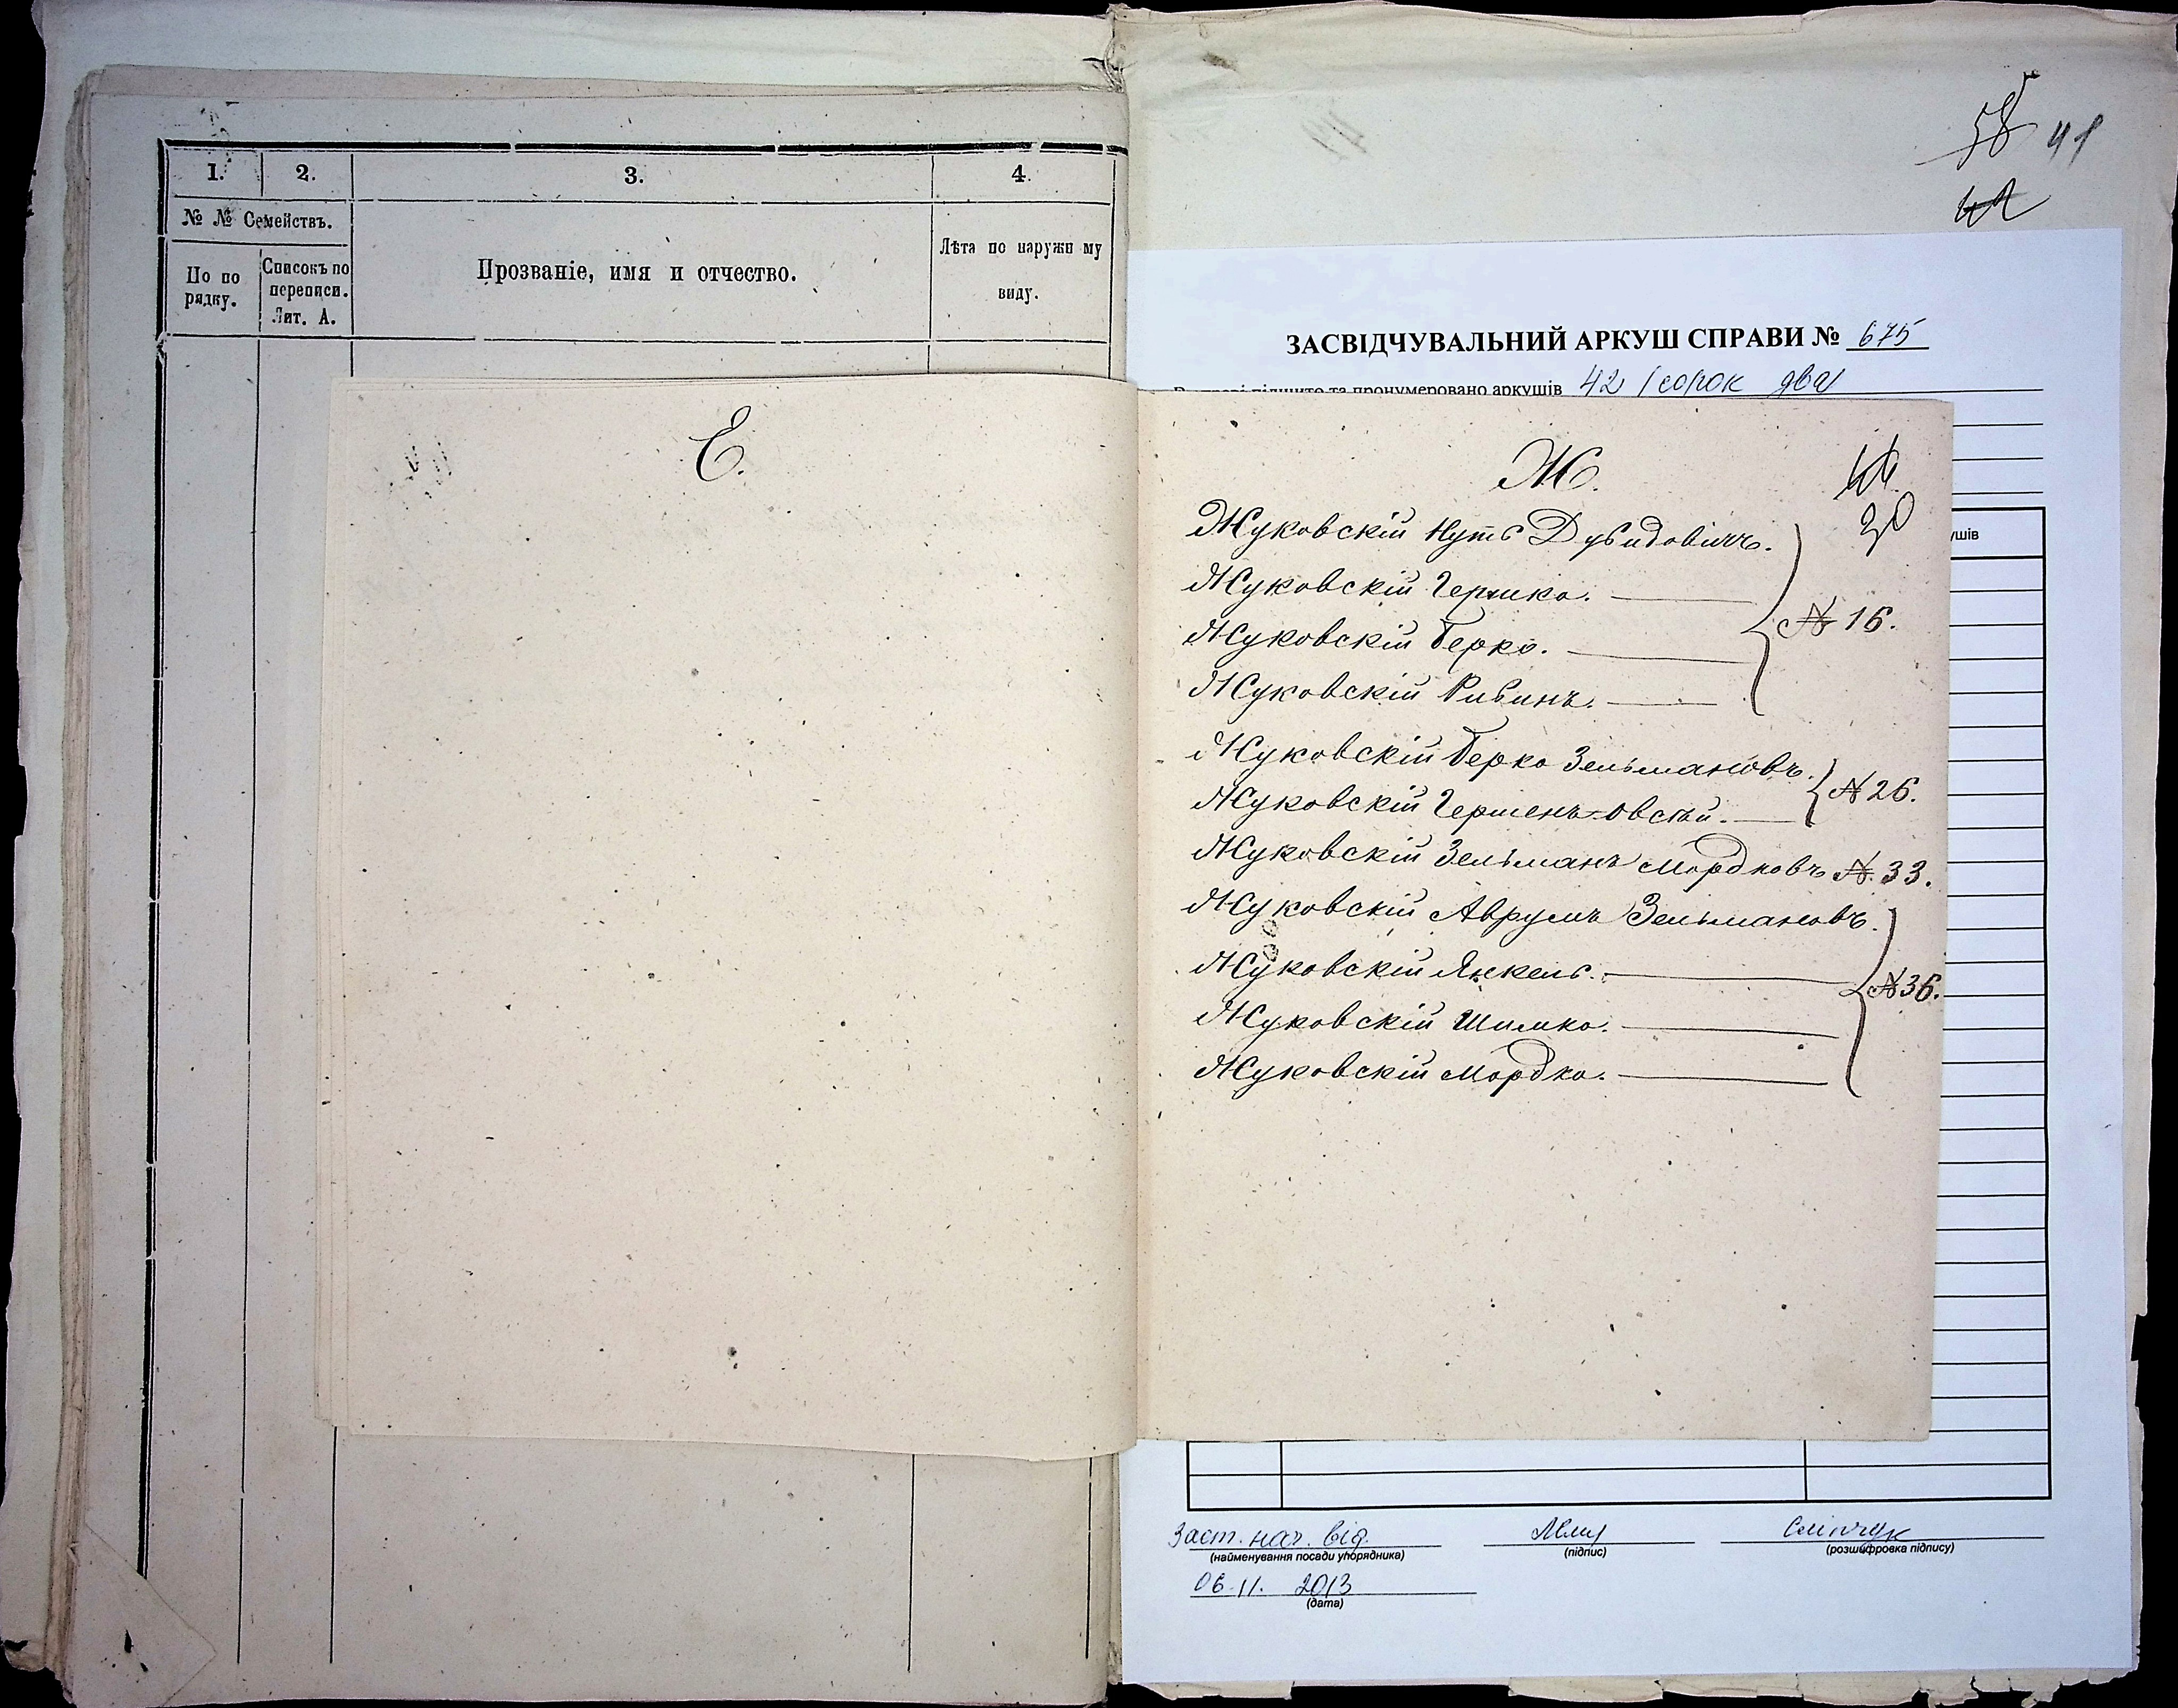 1. 2. 3. 4.
№ № Семействъ.
По по рядку.
Списокъ по переписи. Лит. А.
Прозваніе, имя и отчество.
Лѣта по наружн му виду.
Е.
58 41
ЗАСВІДЧУВАЛЬНИЙ АРКУШ СПРАВИ № 675
підшито та пронумеровано аркушів 42 (сорок два)
Ж.
30
Жуковскій Нутъ Дувидовичъ.
Жуковскій Гершко.
Жуковскій Берко.
Жуковскій Ривинъ.
№ 16.
Жуковскій Берко Зельмановъ.
Жуковскій Гершенъ-Овсѣй.
№ 26.
Жуковскій Зельманъ Мордковъ № 33.
Жуковскій Аврумъ Зельмановъ.
Жуковскій Янкель.
Жуковскій Шимко.
Жуковскій Мордко.
№ 36.
Заст. нач. від.
(найменування посади упорядника)
(підпис)
(розшифровка підпису)
06.11. 2013
(дата)